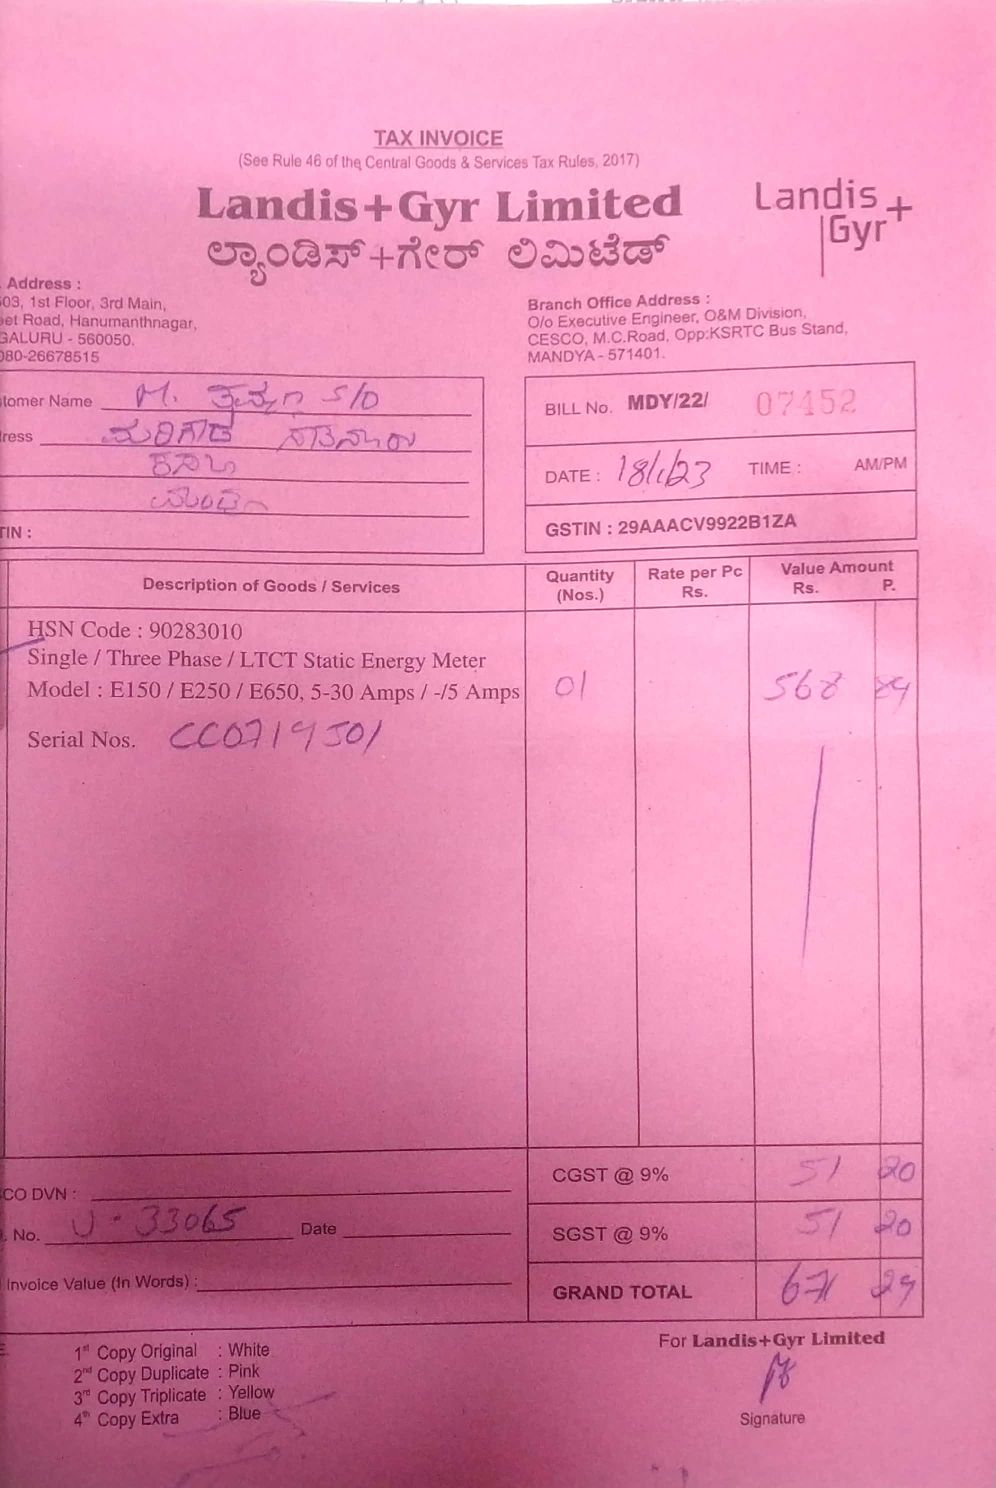 TAX INVOICE
(See Rule 46 of the Central Goods & Services Tax Rules, 2017)
Landis+Gyr Limited
ಲ್ಯಾಂಡಿಸ್+ಗೇರ್ ಲಿಮಿಟೆಡ್
Landis+
Gyr
Address :
03, 1st Floor, 3rd Main,
et Road, Hanumanthnagar,
GALURU - 560050.
080-26678515
Branch Office Address :
O/o Executive Engineer, O&M Division,
CESCO, M.C.Road, Opp:KSRTC Bus Stand,
MANDYA - 571401.
tomer Name M. S/O
ress
TIN :
BILL No. MDY/22/ 07452
DATE : 18/1/23 TIME : AM/PM
GSTIN : 29AAACV9922B1ZA
Description of Goods / Services Quantity (Nos.) Rate per Pc Rs. Value Amount Rs. P.
HSN Code : 90283010
Single / Three Phase / LTCT Static Energy Meter
Model : E150 / E250 / E650, 5-30 Amps / -/5 Amps 01 568 89
Serial Nos. CC0719501
CGST @ 9% 51 20
CO DVN :
No. U - 33065 Date
SGST @ 9% 51 20
Invoice Value (In Words) :
GRAND TOTAL 671 29
1st Copy Original : White
2nd Copy Duplicate : Pink
3rd Copy Triplicate : Yellow
4th Copy Extra : Blue
For Landis+Gyr Limited
Signature